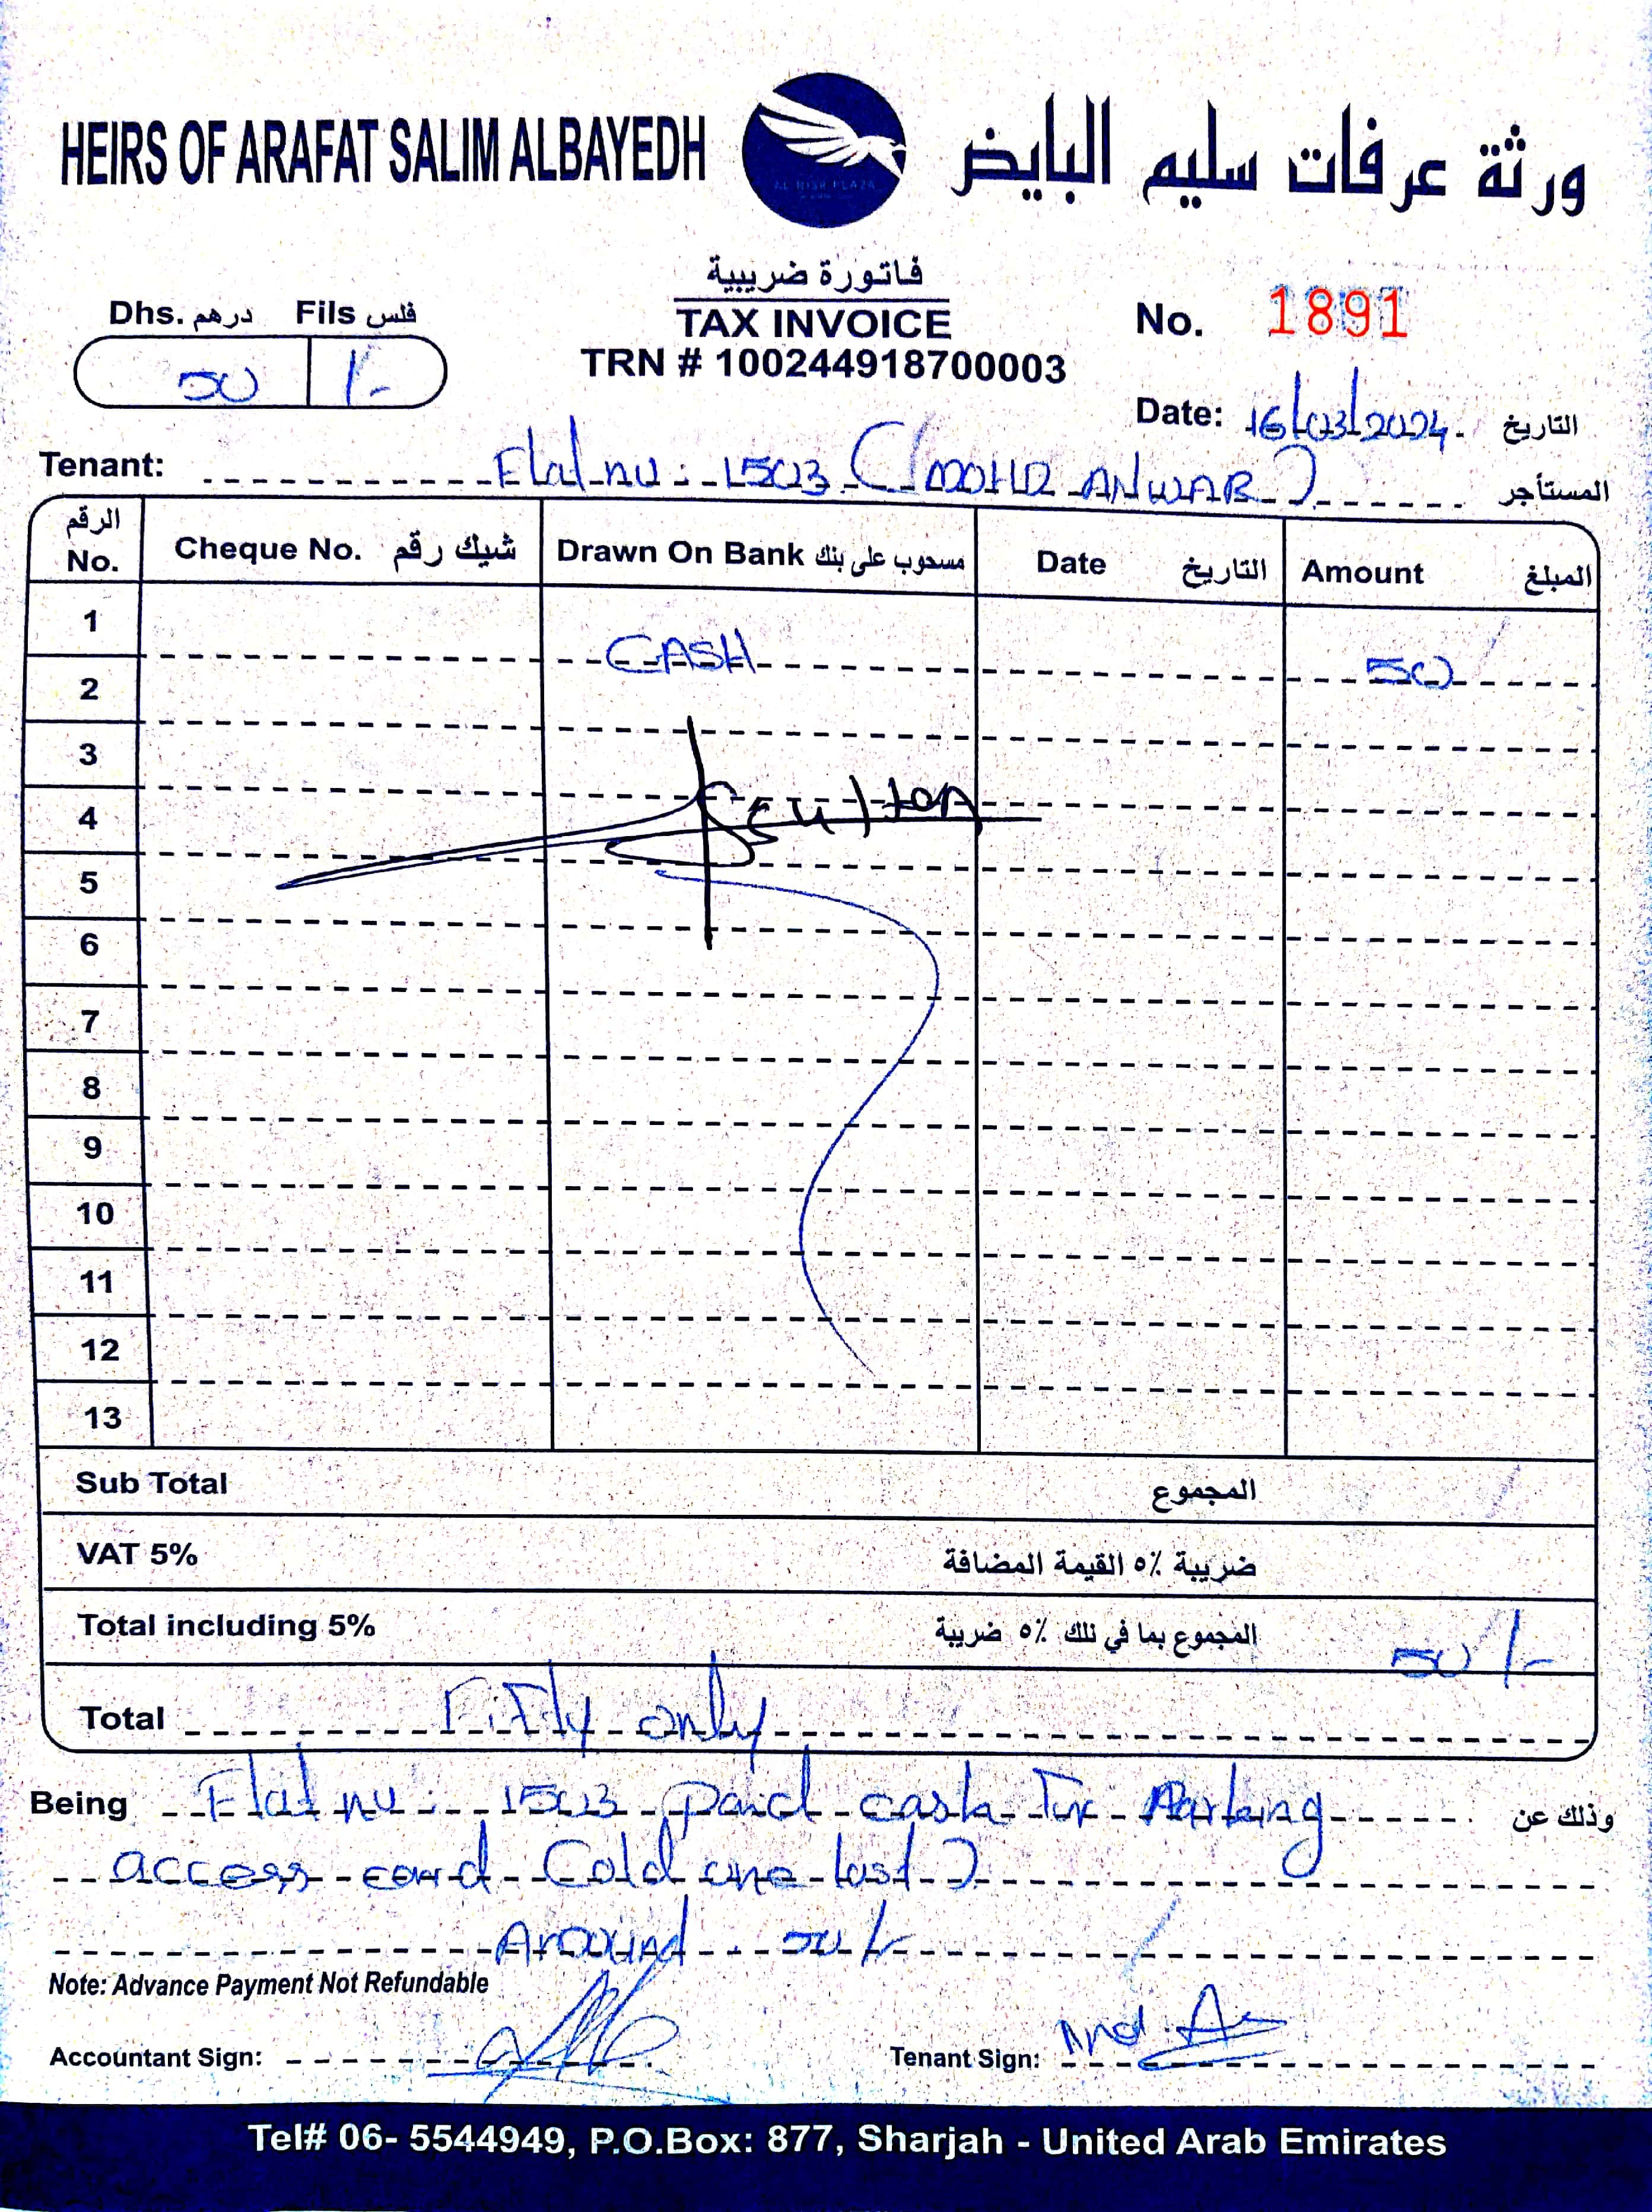 HEIRS OF ARAFAT SALIM ALBAYEDH
AL HISN PLAZA
ورثة عرفات سليم البايض
فاتورة ضريبية
TAX INVOICE
TRN # 100244918700003
Dhs. درهم Fils فلس
50 /-
No. 1891
Date: 16/03/2024. التاريخ
Tenant: Flat no: 1503 (MOHD ANWAR) المستأجر
الرقم No. Cheque No. شيك رقم Drawn On Bank مسحوب على بنك Date التاريخ Amount المبلغ
1
CASH 50
2
3
4
5
6
7
8
9
10
11
12
13
Sub Total المجموع
VAT 5% ضريبة ٥٪ القيمة المضافة
Total including 5% المجموع بما في تلك ٥٪ ضريبة 50/-
Total Fifty only
Being Flat no: 1503 paid cash for Parking وذلك عن
access card (old one lost)
Around 50/-
Note: Advance Payment Not Refundable
Accountant Sign:
Tenant Sign:
Tel# 06- 5544949, P.O.Box: 877, Sharjah - United Arab Emirates